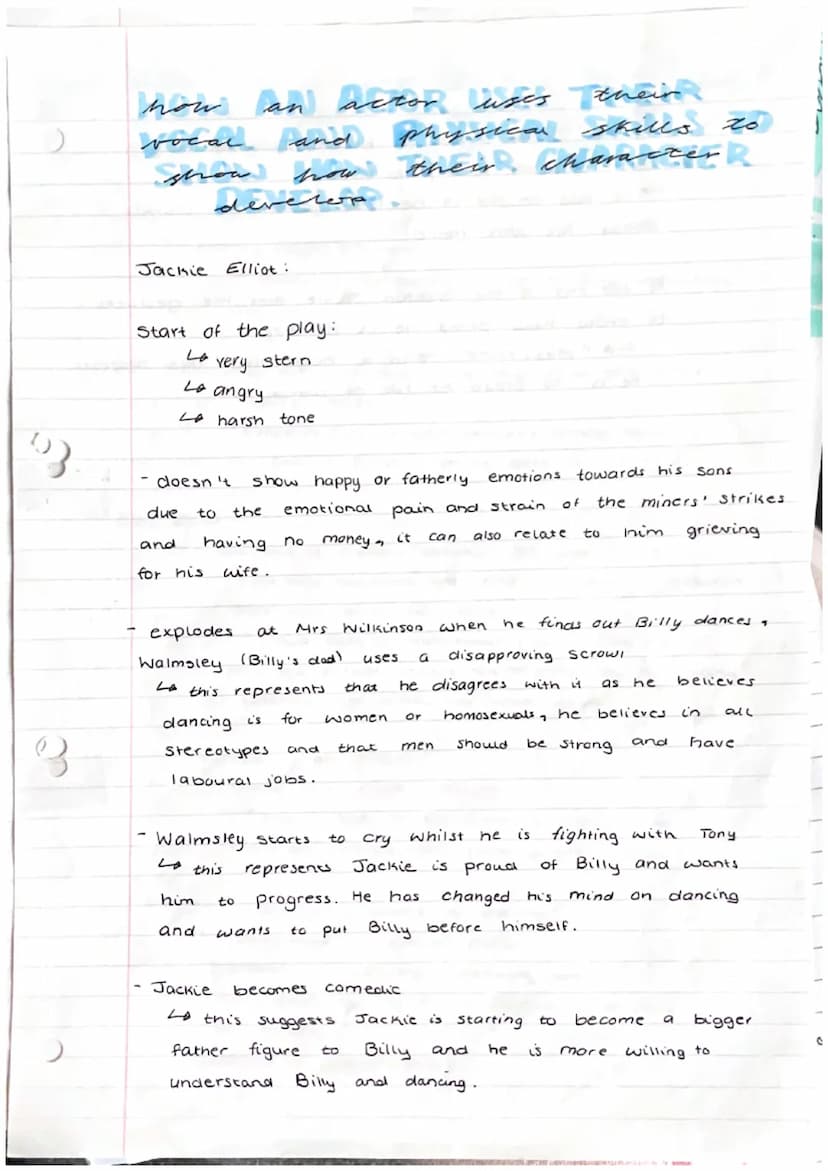 how an actor uses their
vocal and physical skills to
show how their character
develop.
Jackie Elliot:
Start of the play:
↳ very stern
↳ angry
↳ harsh tone
- doesn't show happy or fatherly emotions towards his sons
due to the emotional pain and strain of the miners' strikes
and having no money, it can also relate to him grieving
for his wife.
- explodes at Mrs Wilkinson when he finds out Billy dances,
Walmsley (Billy's dad) uses a disapproving scrowl
↳ this represents that he disagrees with it as he believes
dancing is for women or homosexuals, he believes in all
stereotypes and that men should be strong and have
laboural jobs.
- Walmsley starts to cry whilst he is fighting with Tony
↳ this represents Jackie is proud of Billy and wants
him to progress. He has changed his mind on dancing
and wants to put Billy before himself.
- Jackie becomes comedic
↳ this suggests Jackie is starting to become a bigger
father figure to Billy and he is more willing to
understand Billy and dancing.